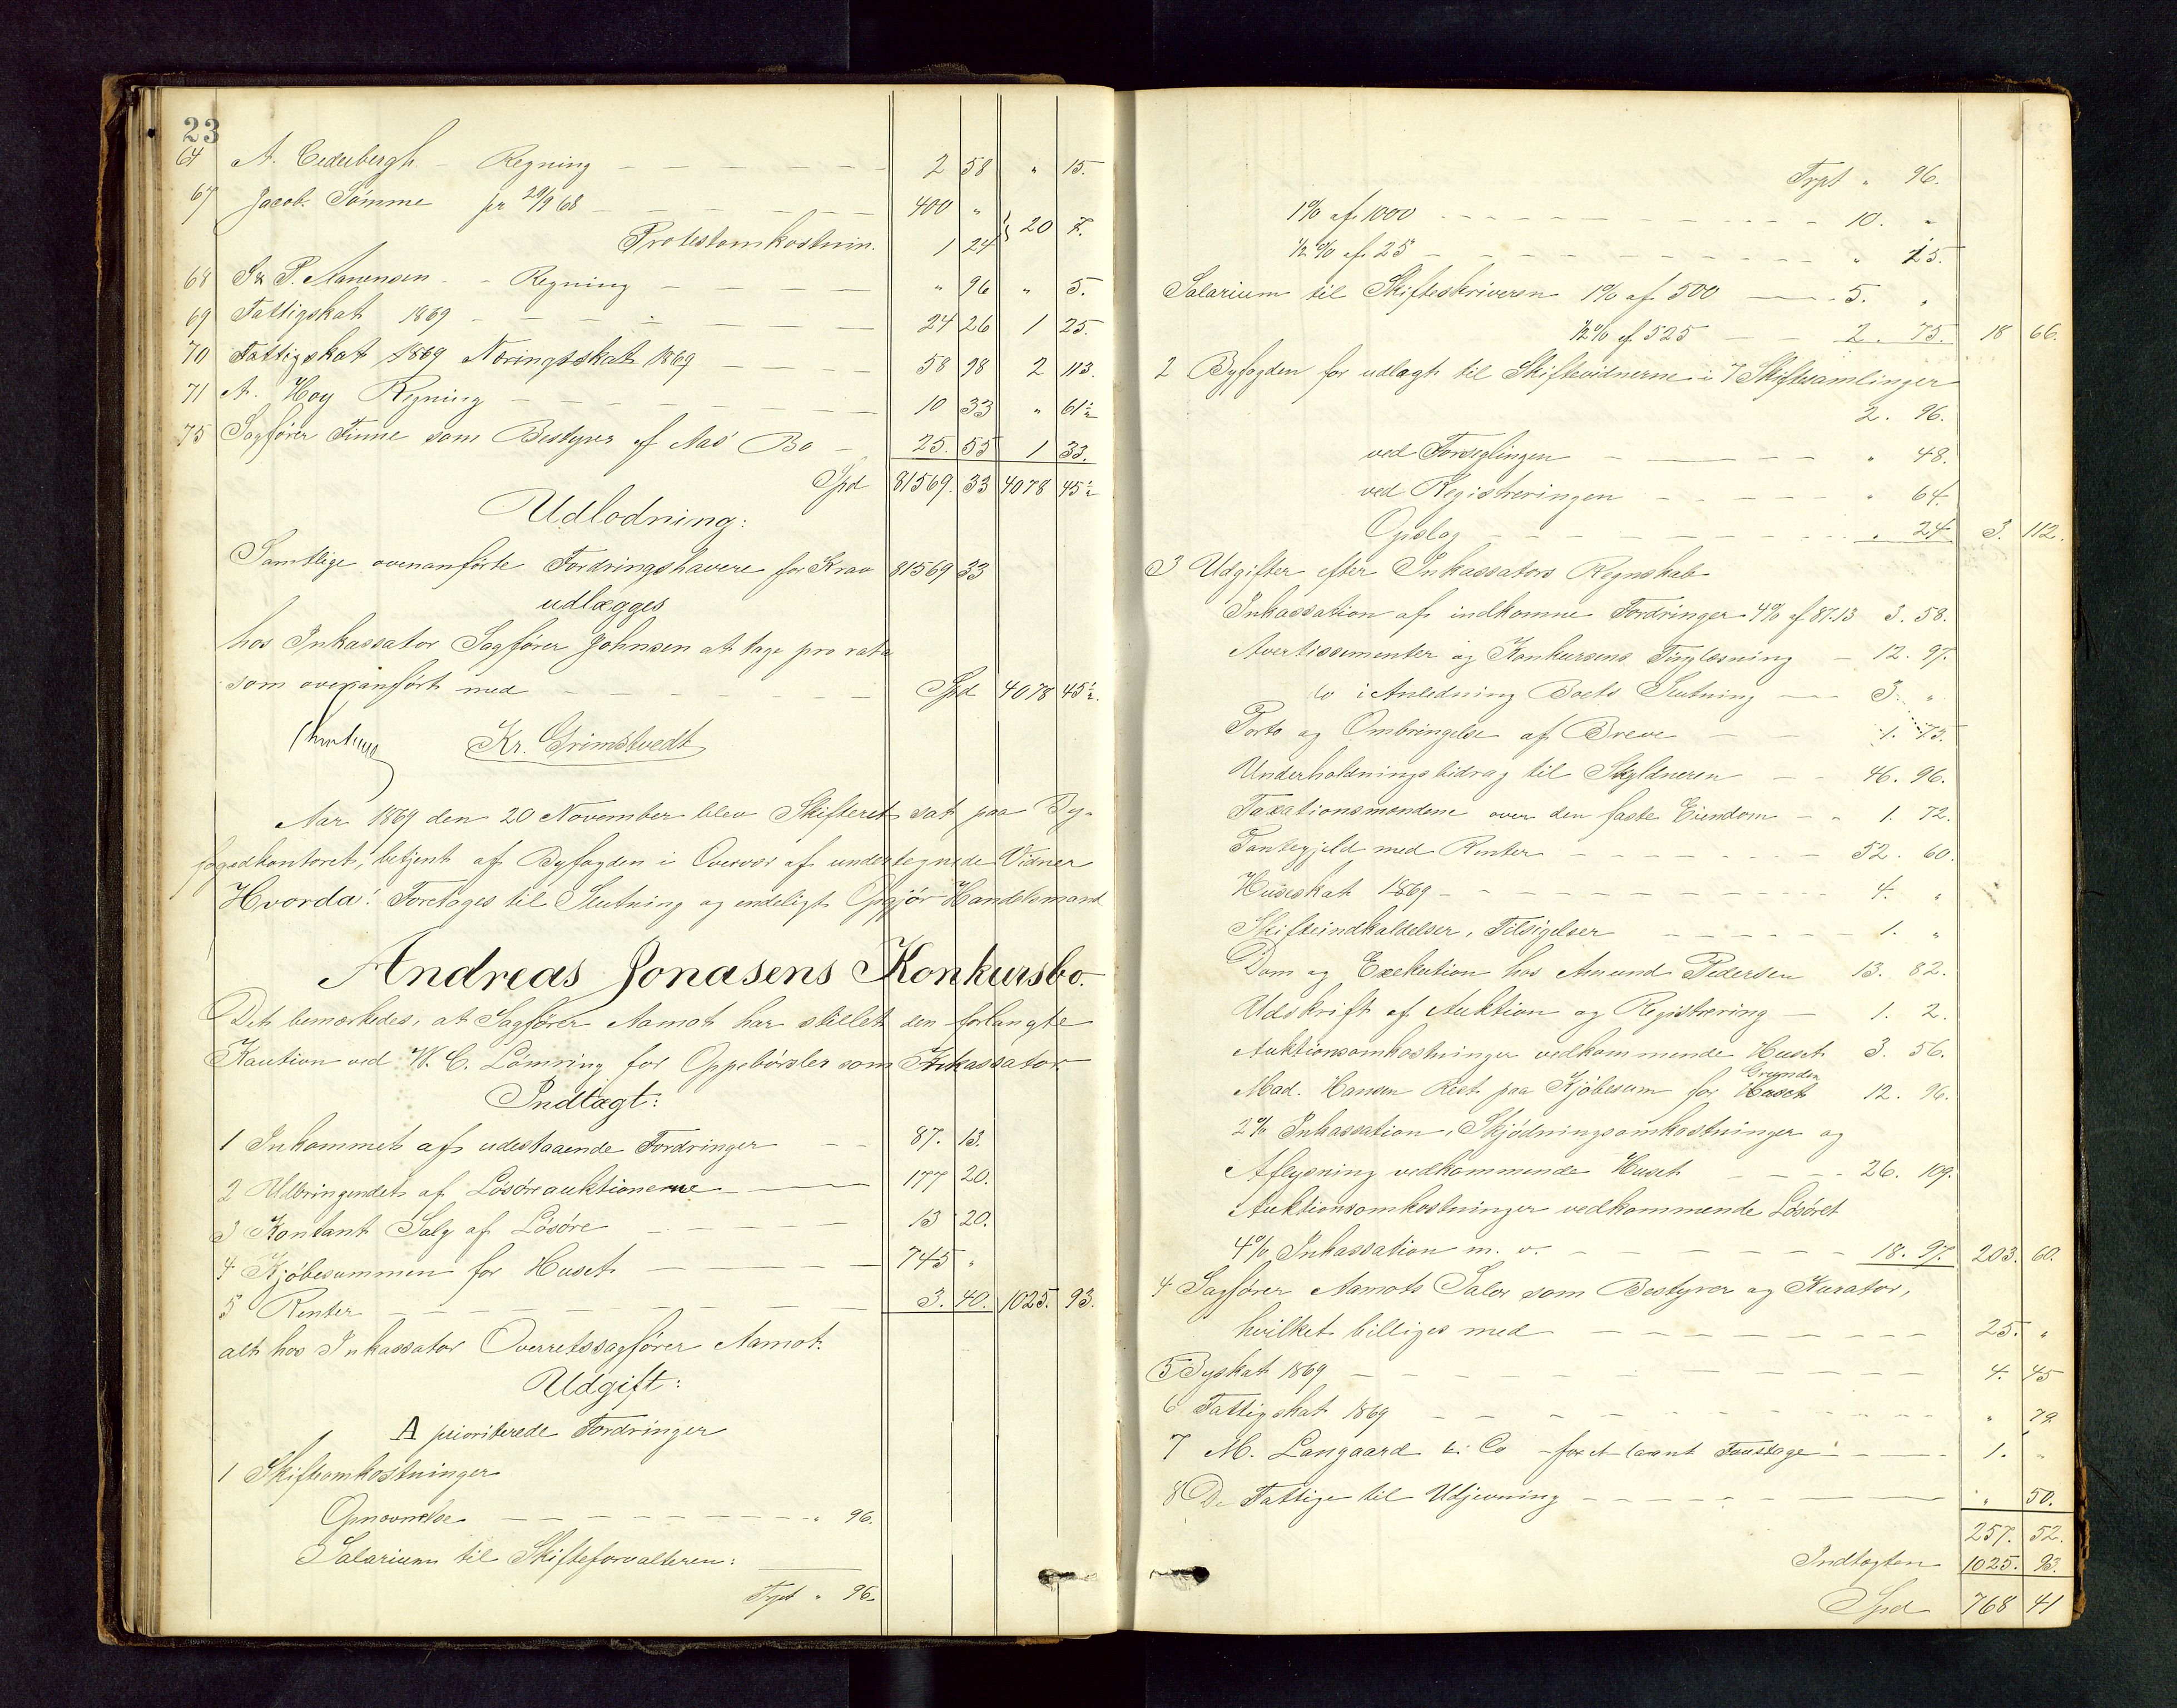 23
64 A. Cederbergh. - Regning - - - - - - - 2 58 " 15.
67 Jacob Sömme pr 29/9 68 - - - - - - - 400 "
Protestomkostnin. 1 24 } 20 7.
68 P. Aanensen - - Regning - - - - - " 96 " 5.
69 Fattigskat 1869 - - - - - - - 24 26 1 25.
70 Fattigskat 1869 Næringsskat 1869 - - - - 58 98 2 113.
71 A. Hoy Regning - - - - - - - 10 33 " 61½
75 Sagfører Finne som Bestyrer af Aas' Bo - 25. 55 1 33.
Spd 81569. 33 4078 45½
Udlodning:
Samtlige ovenanførte Fordringshavere for Krav 81569 33
udlægges
hos Inkassator Sagfører Johnsen at tage pro rata
som ovenanført med - - - - - - - Spd 4078 45½.
Kr. Grimstvedt
Aar 1869 den 20 November blev Skifteret sat paa By-
fogedkontoret, betjent af Byfogden i Overvær af undertegnede Vidner
Hvorda: Foretages til Slutning og endeligt Opgjör Handelsmand
Andreas Jonasens Konkursbo.
Det bemærkedes, at Sagfører Aamot har stillet den forlangte
Kaution ved W. C. Lömning for Oppebörsler som Inkassator
Indtægt:
1 Inkommet af udestaaende Fordringer - - 87. 13.
2 Udbringendet af Lösöreauktionerne - - - 177 20.
3 Kontant Salg af Lösöre - - - - - 13 20.
4 Kjöbesummen for Huset - - - - - 745 "
5 Renter - - - - - - - - 3. 40. 1025. 93.
alt hos Inkassator Overretssagfører Aamot.
Udgift:
A prioriterede Fordringer
1 Skifteomkostninger
Opnævnelse - - - - - - - - " 96.
Salarium til Skifteforvalteren:
Trpt " 96.
Trpt " 96.
1% af 1000 - - - - - - - - - 10. "
½% af 25 - - - - - - - - - " 15.
Salarium til Skifteskriveren 1% af 500 - - 5. "
½% af 525 - - 2. 75. 18 66.
2 Byfogden for udlagt til Skiftevidnerne i 7 Skiftesamlinger
2. 96.
ved Forseglingen - - - - " 48.
ved Registreringen - - - - - " 64.
Opslag - - - - - - - - " 24 3. 112.
3 Udgifter efter Inkassators Regnskab
Inkassation af indkomne Fordringer 4% af 87.13 3. 58.
Avertissementer og Konkursens Tinglæsning - 12. 97.
do i Anledning Boets Slutning - - 3. "
Porto og Ombringelse af Breve - - 1. 73.
Underholdningsbidrag til Skyldneren - - 46. 96.
Taxationsmændene over den faste Eiendom - - 1. 72.
Pantegjeld med Renter - - - - - - 52. 60.
Huseskat 1869 - - - - - - - - 4. "
Skifteindkaldelser, Tilsigelser - - - - - - 1. "
Dom og Exekution hos Amund Pedersen 13. 82.
Udskrift af Auktion og Registrering - 1. 2.
Auktionsomkostninger vedkommende Huset 3. 56.
Grunden
Mad. Hansen Rest paa Kjöbesum for Huset 12. 96.
2% Inkassation, Skjödningsomkostninger og
Aflysning vedkommende Huset - - - 26. 109.
Auktionsomkostninger vedkommende Lösöret
4% Inkassation m. v. - - - - - - - 18. 97. 203. 60.
4 Sagfører Aamots Salær som Bestyrer og Kurator,
hvilket billiges med - - - - - - - - 25. "
5 Byskat 1869 - - - - - - - - - - 4. 45
6 Fattigskat 1869 - - - - - - - - - " 79
7 M. Langaard & Co - for et laant Faustage - - - 1. "
8 De Fattige til Udjevning - - - - - - - " 50.
257. 52.
Indtægten 1025. 93.
Spd 768 41